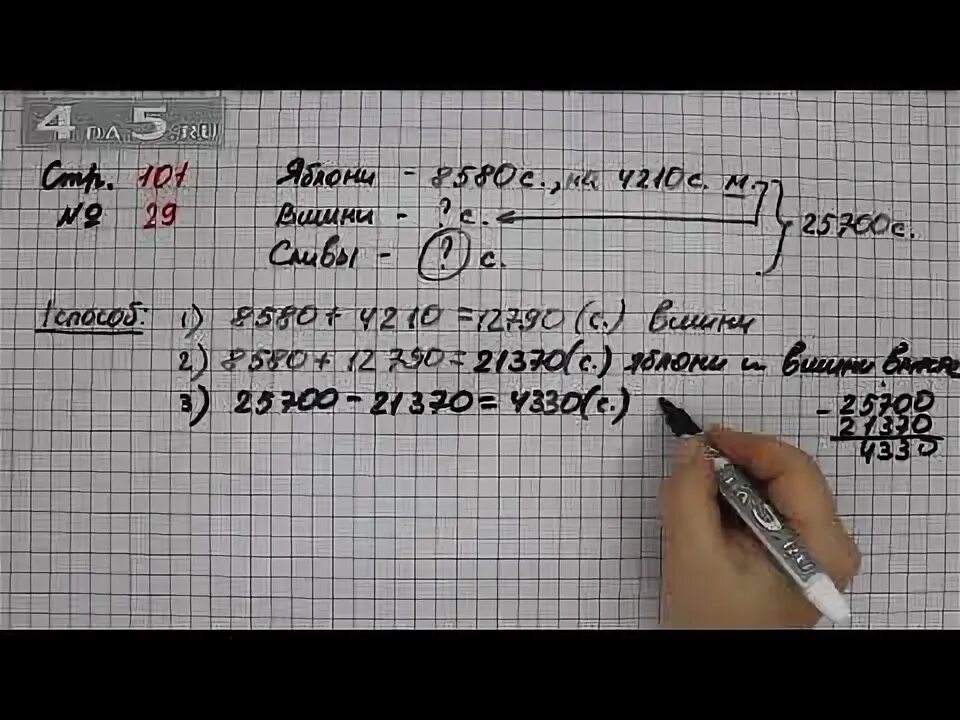 4 на 5.RU
Стр. 101
№ 29
Яблони - 8580 с., на 4210 с. м.
Вишни - ? с.
Сливы - ? с.
25700 с.
1 способ:
1) 8580 + 4210 = 12790 (с.) вишни
2) 8580 + 12790 = 21370 (с.) яблони и вишни
3) 25700 - 21370 = 4330 (с.)
- 25700
21370
4330